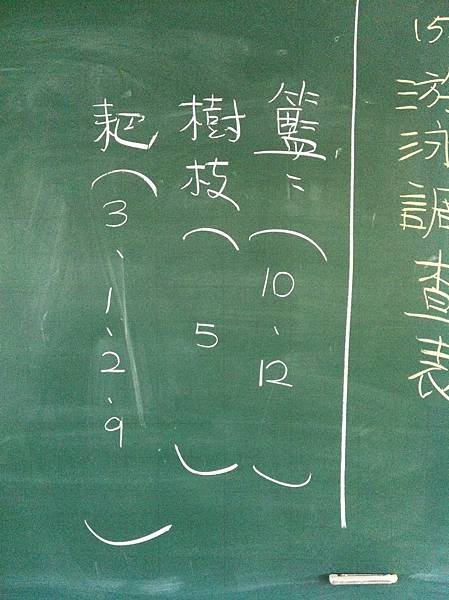 15游泳調查表
籃:(10、12)
樹枝(5)
耙(3、1、2、9)